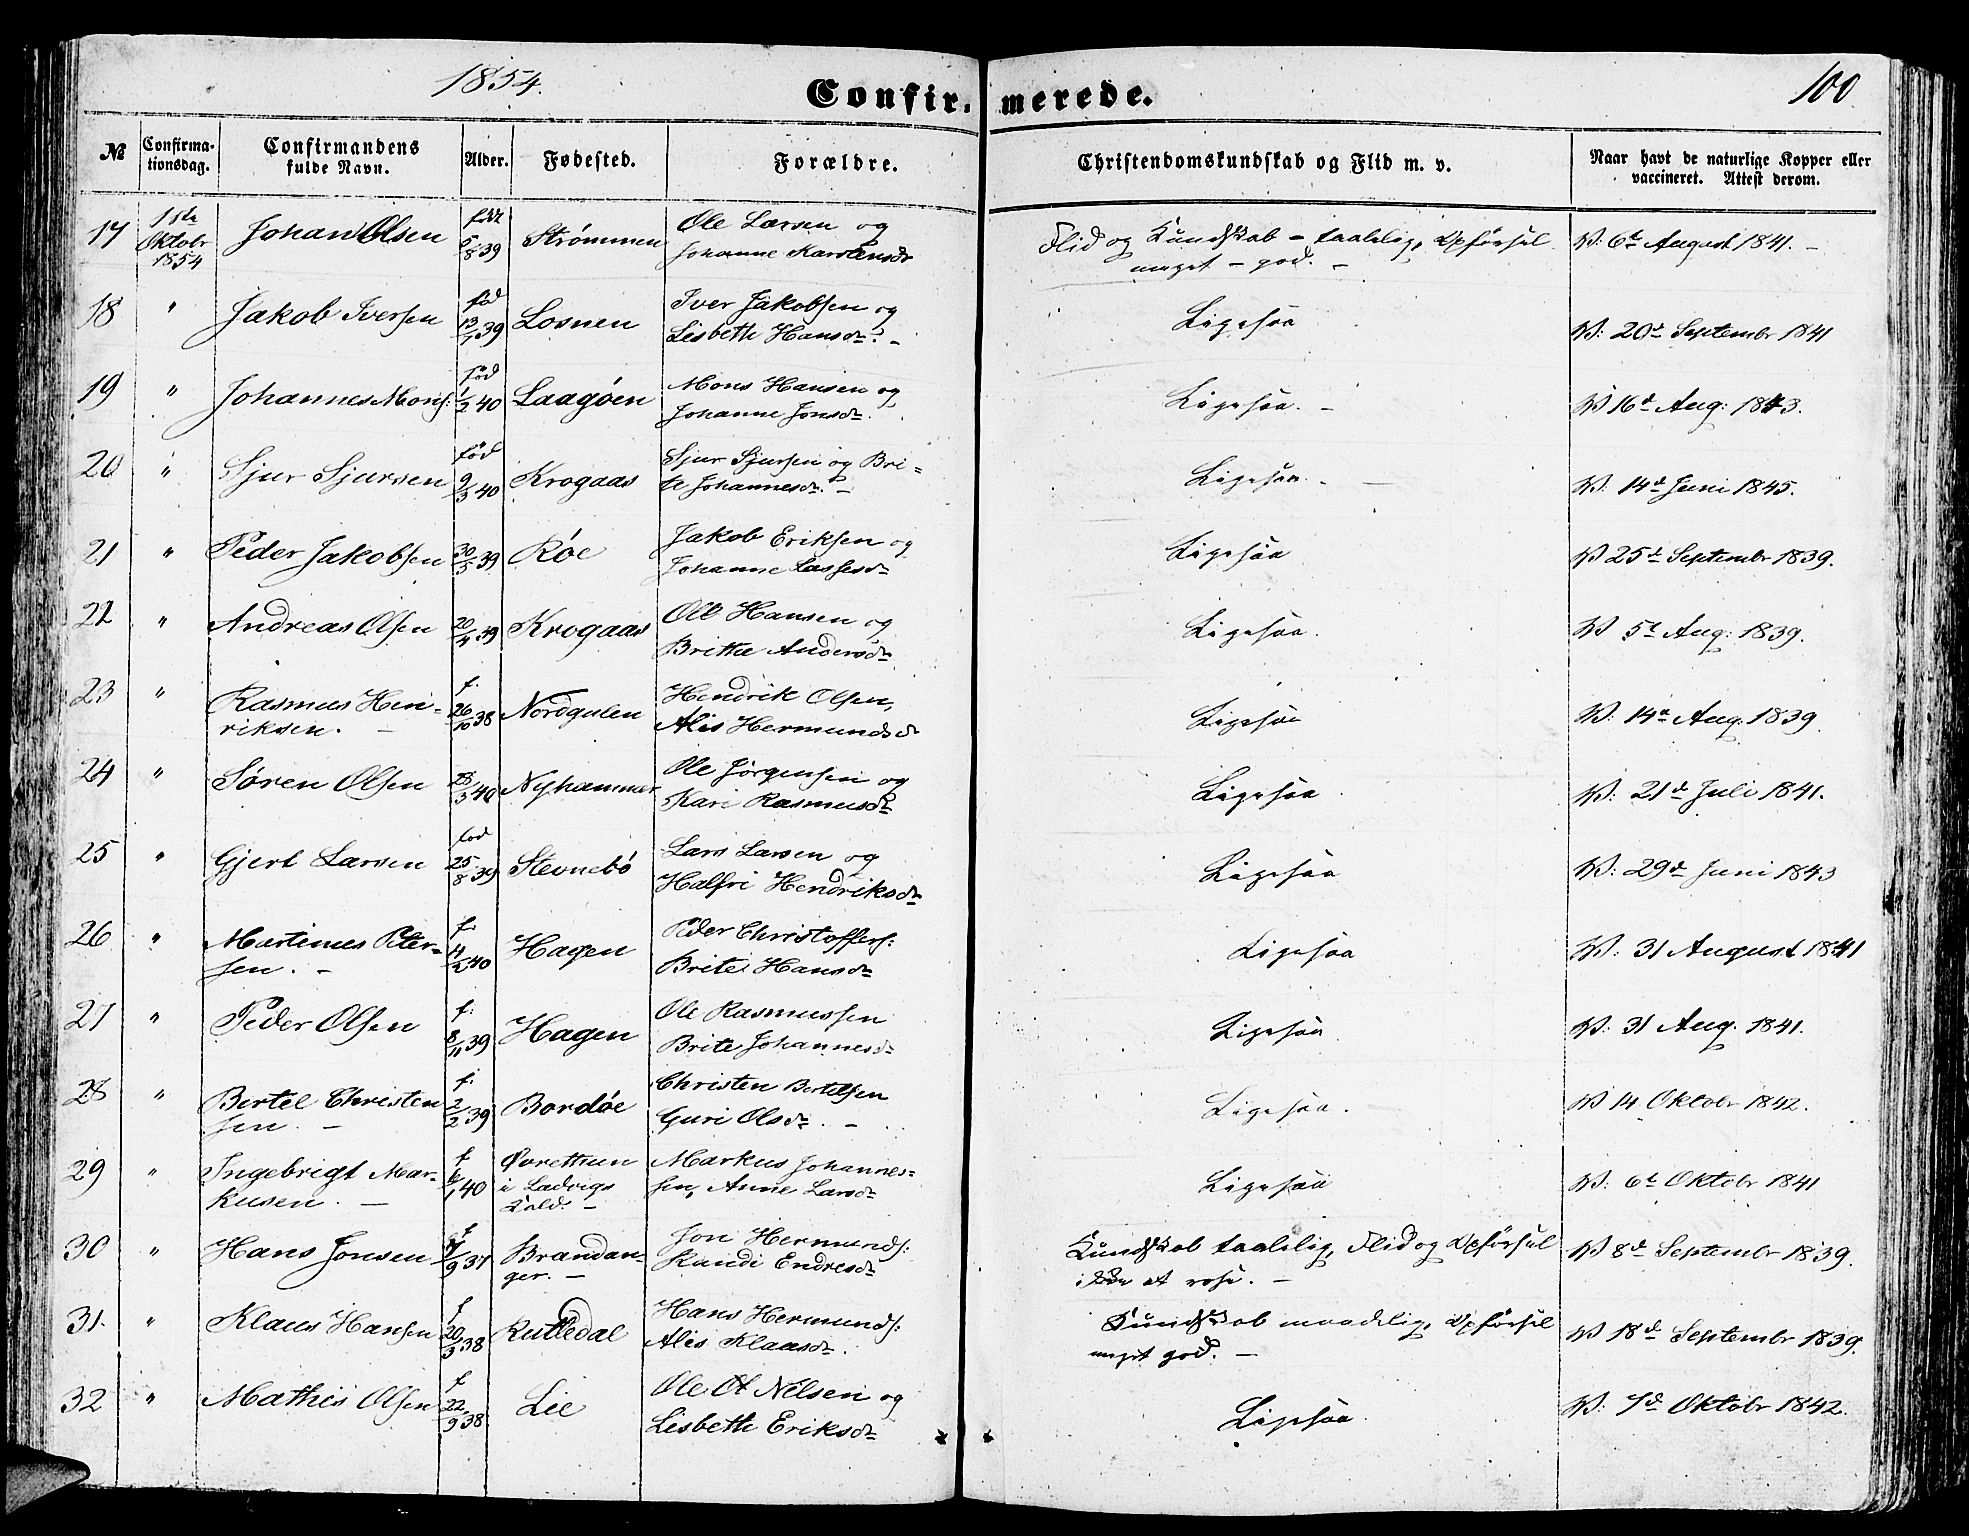 1854.
Confir-merede.
100
№
Confirma-
tionsdag.
Confirmandens
fulde Navn.
Alder.
Fødested.
Forældre.
Christendomskundskab og Flid m. v.
Naar havt de naturlige Kopper eller
vaccineret. Attest derom.
17 1ste Oktobr 1854 Johan Olsen 5/8 39 Strømmen Ole Larsen og
Johanne Karstensdr
Flid og Kundskab - taalelig, Opførsel
meget - god. -
V: 6te August 1841. -
18 " Jakob Iversen fød 13/1 39 Losnen Iver Jakobsen og
Lisbeth Hansdr. -
Ligesaa
V: 20d Septembr 1841
19 " Johannes Mons: fød 1/2 40 Laagøen Mons Hansen og
Johanne Jonsdr.
Ligesaa. -
V 16d Aug: 1843.
20 " Sjur Sjursen fød 9/3 40 Krogaas Sjur Sjursen og Bri=
te Johannesdr. -
Ligesaa. -
V. 14d Juni 1845.
21 " Peder Jakobsen 30/3 39 Røe Jakob Eriksen og
Johanne Lassesdr
Ligesaa
V 25d Septembr 1839.
22 " Andreas Olsen 20/4 39 Krogaas Ole Hansen og
Britha Andersdr
Ligesaa.
V 5t Aug: 1839.
23 " Rasmus Hen-
riksen. - f. 26/10 38 Nordgulen Hendrik Olsen,
Alis Hermundsd
Ligesaa
V: 14d Aug: 1839
24 " Søren Olsen /3 40 Nyhammer Ole Jørgensen og
Kari Rasmusdr
Ligesaa
V: 21d Juli 1841.
25 " Gjert Larsen fød 25/8 39 Stevnebø Lars Larsen og
Halfri Hendriksdr
Ligesaa
V: 29d Juni 1843
26 " Martinus Peter-
sen. - f. 40 Hagen Peder Christoffers:
Brite Hansdr
Ligesaa
V: 31 August 1841
27 " Peder Olsen f: 8/11 39 Hagen Ole Rasmussen
Brite Johannesdr
Ligesaa
V: 31 Aug. 1841.
28 " Bertel Christen
sen. - f. 2/2 39 Bordøe Christen Bertelsen
Guri Olsdr. -
Ligesaa.
V 14 Oktobr 1842.
29 " Ingebrigt Mar-
kusen. - f 6/1 40 Øvrettun
i Ladvigs
Sold. - Markus Johannes=
sen, Anne Larsdr
Ligesaa
V: 6t Oktobr 1841
30 " Hans Jonsen f /9 37 Brandan-
ger. - Jon Hermunds:
Randi Endresdr
Kundskab taalelig, Flid og Opførsel
ikke at rose. -
V 8d Septembr 1839.
31. " Klaus Hansen f 20/3 38 Rutledal Hans Hermunds:
Alis Klaasdr.
Kundskab maadelig, Opførsel
meget god. -
V 18d Septembr 1839.
32 " Mathis Olsen f 22/9 38 Lie Ole Nilsen og
Lisbeth Eriksdr
Ligesaa.
V: 7d Oktobr 1842.